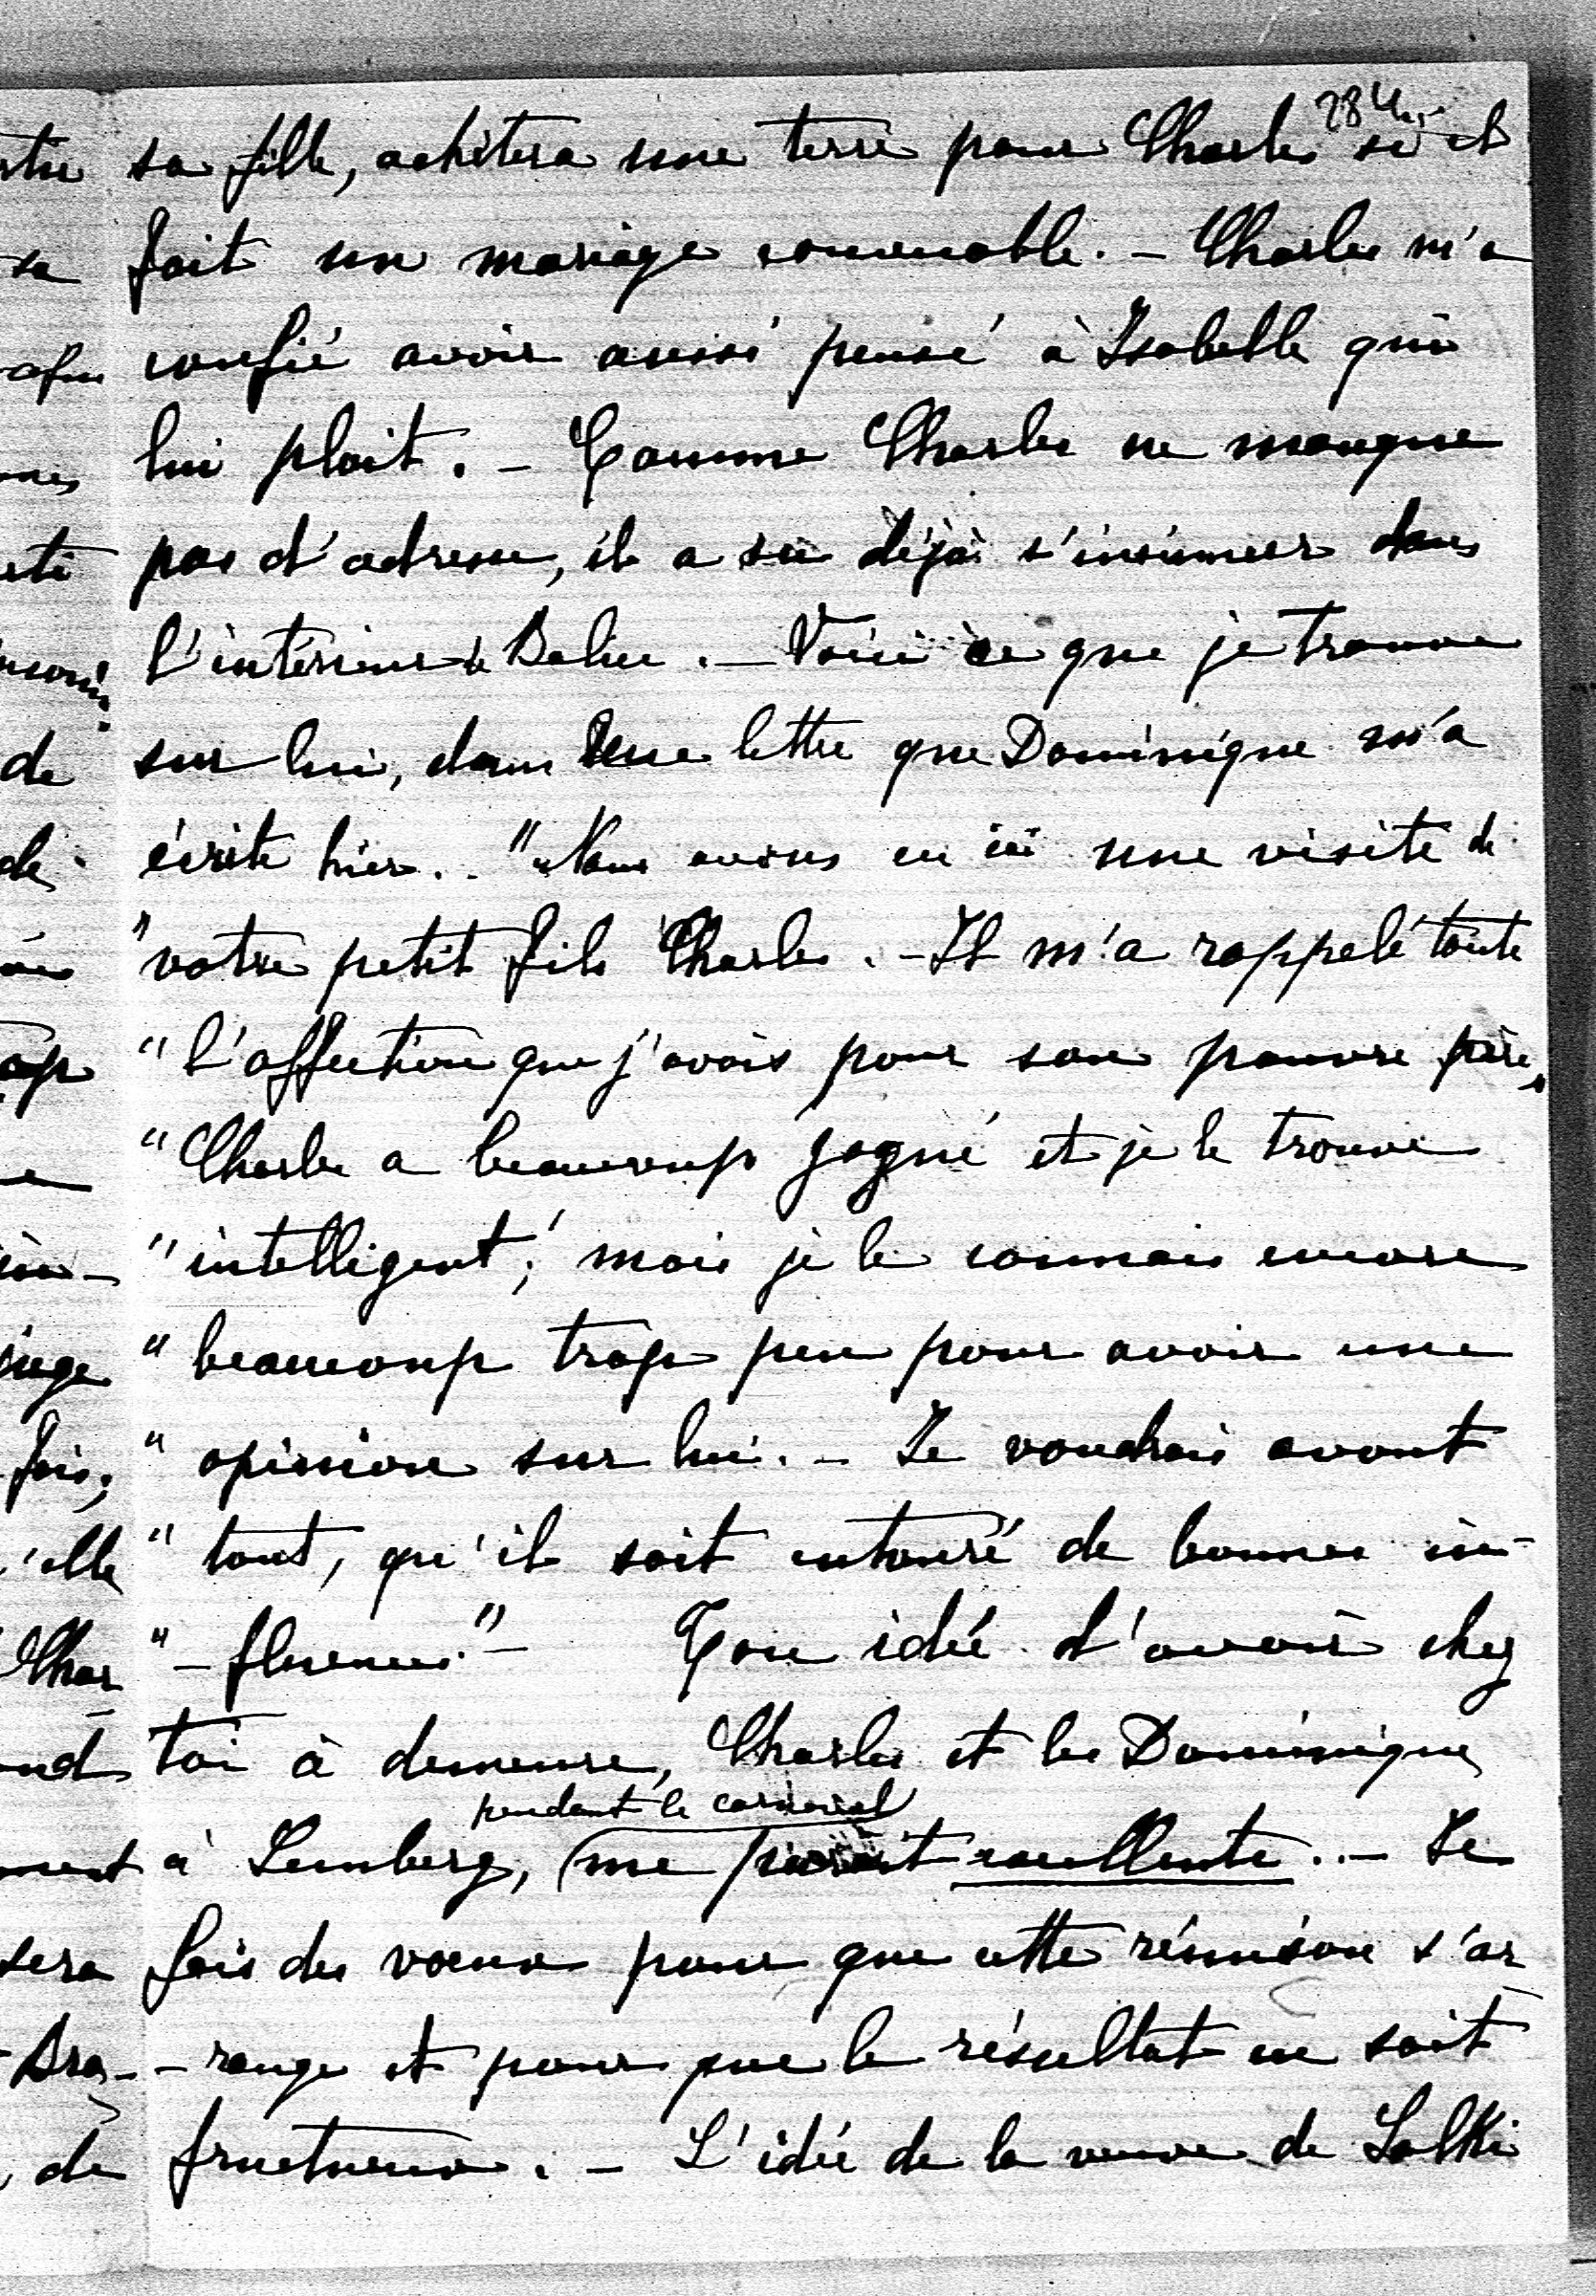 sa fille, achètera une terre pour Charles si il
fait un mariage convenable. - Charles m'a
confié avoir aussi pensé à Isabelle qui
lui plait. - Comme Charles ne manque
pas d'adresse, il a su déjà s'insinuer dans
l'intérieur de . - Voici ce que je trouve
sur lui, dans une lettre que Dominique m'a
écrite hier.. "Nous avons eu ici une visite de
"votre petit fils Charles. - Il m'a rappelé toute
"l'affection que j'avais pour son pauvre père,
"Charles a beaucoup gagné et je le trouve
"intelligent; mais je le connais encore
"beaucoup trop peu pour avoir une
"opinion sur lui. - Je voudrais avant
"tout, qu'il soit entouré de bonnes in-
"-fluences." - Ton idée d'avoir chez
toi à demeure, Charles et les Dominique
pendant le carnaval
à Lemberg, me parait excellente.. - Je
fais des voeux pour que cette réunion s'ar
-range et pour que le résultat en soit
fructueux. - L'idée de la veuve de